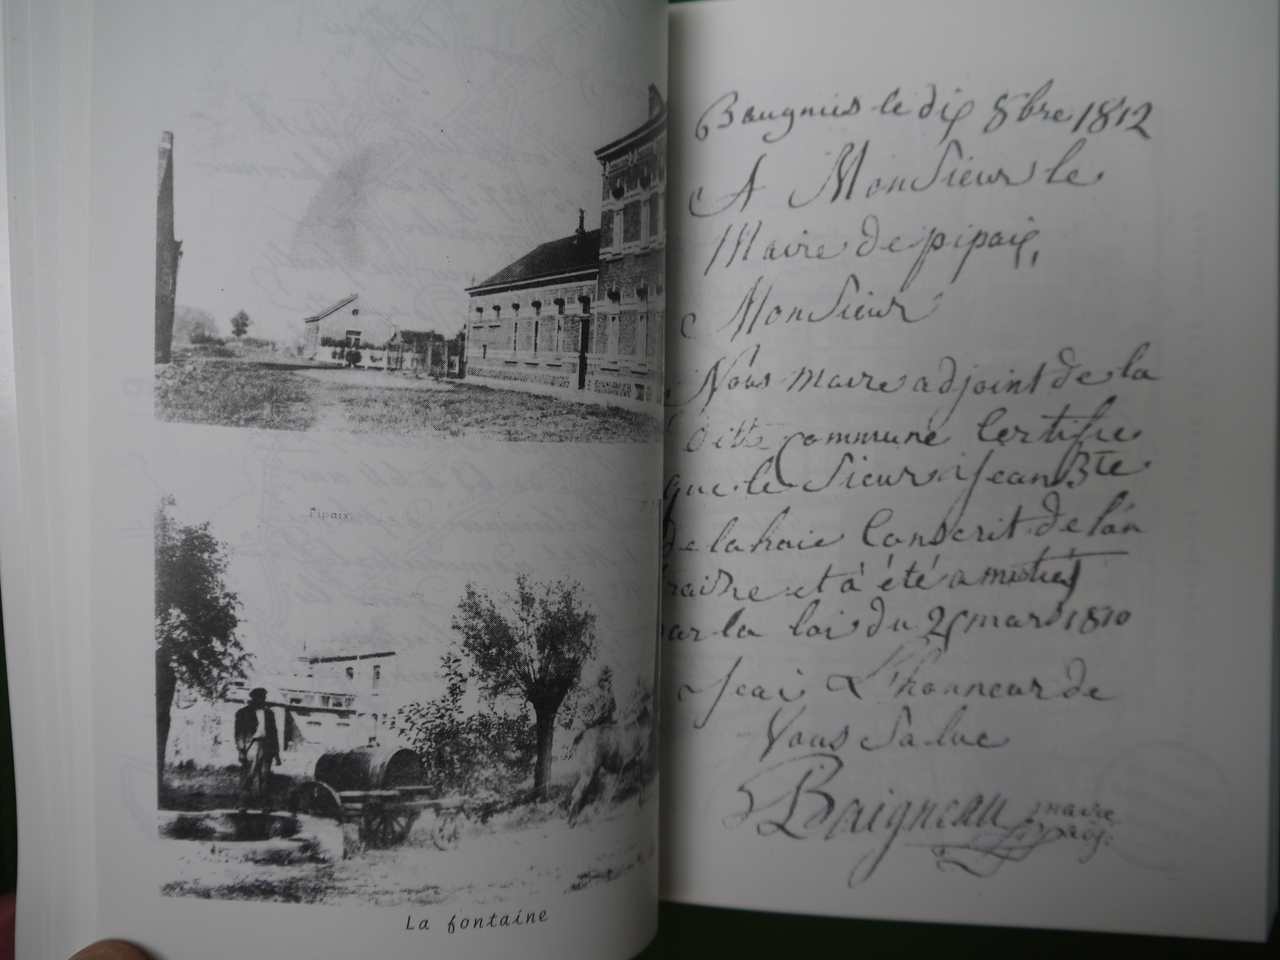 Pipaix.
La fontaine
Baugnies le dix 8bre 1812
A Monsieur le
Maire de pipaix,
Monsieur
Nous maire adjoint de la
ditte Commune Certifie
que le Sieur Jean Bte
de la haie Conscrit de l'an
treize et à été amistiés
par la loi du 25 mars 1810
Jeai L'honneur de
Vous Salue
Baigneau maire